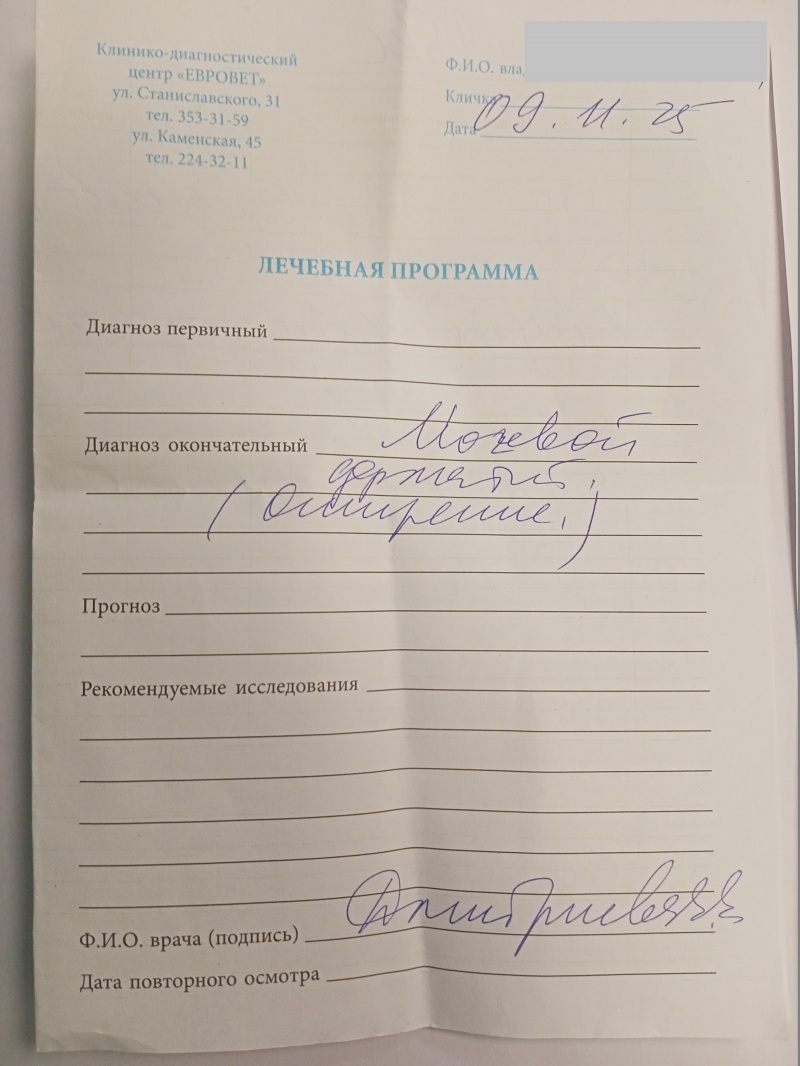 Клинико-диагностический
центр «ЕВРОВЕТ»
ул. Станиславского, 31
тел. 353-31-59
ул. Каменская, 45
тел. 224-32-11
Ф.И.О.
Кличка
Дата 09.11.25
ЛЕЧЕБНАЯ ПРОГРАММА
Диагноз первичный
Диагноз окончательный Мочевой
(Ожирение.)
Прогноз
Рекомендуемые исследования
Ф.И.О. врача (подпись)
Дата повторного осмотра